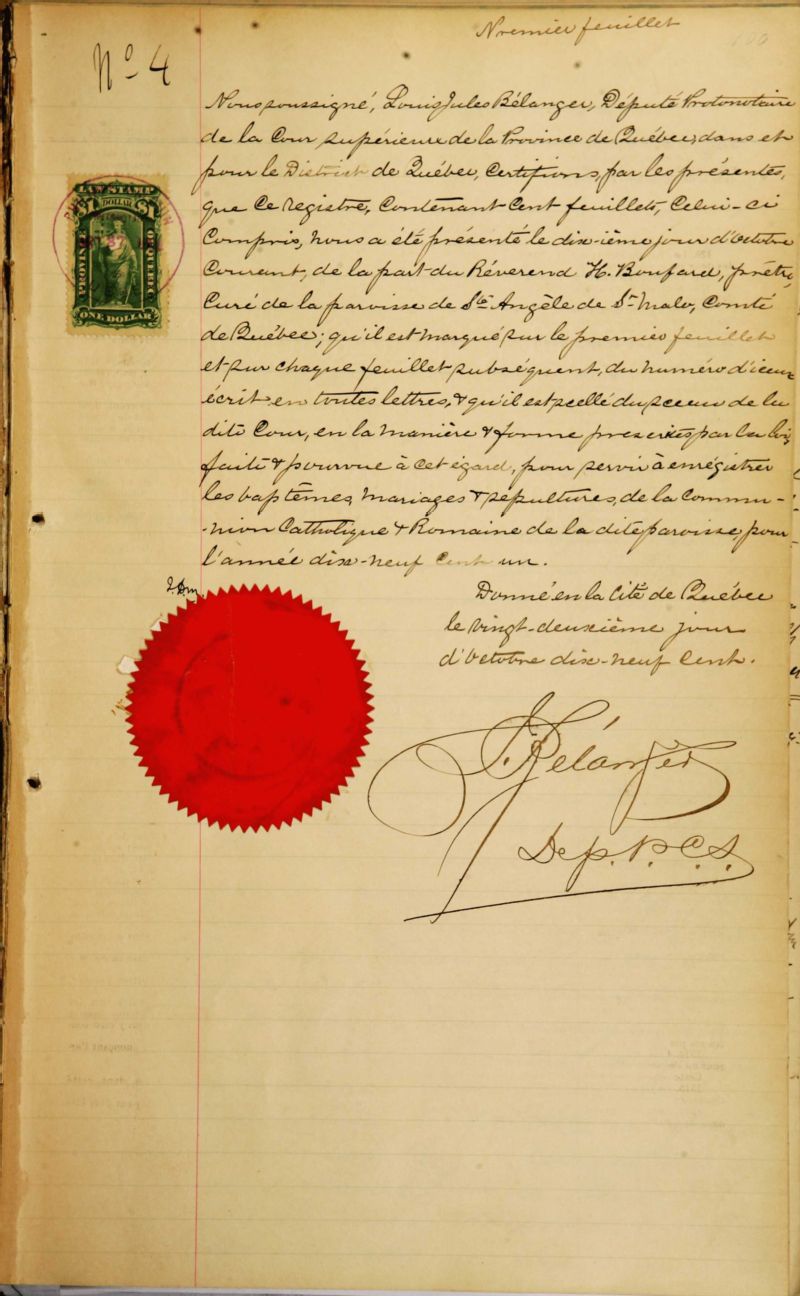 Premier feuillet
No. 4
100
Nous soussigné, Louis Jules Bélanger, Député Protonotaire
de la Cour supérieure de la Province de Québec, dans et
pour le District de Québec, Certifions, par les présentes,
que ce registre, Contenant Cent feuillets, Celui-ci
Compris, nous a été présenté le dix-ième jour d'Octobre
Courant, de la part du Révérend H. Bouffard, prêtre
Curé de la paroisse de Ste Angèle de St Malo, Comté
de Québec; qu'il est marqué sur le premier feuillet
et sur chaque feuillet subséquent, du numéro d'iceux
écrit en toutes lettres, & qu'il est scellé du sceau de la
dite Cour, en la manière & forme prescrites par la loi
faite & pourvue à cet égard, pour servir à enrégistrer
les baptêmes, mariages & sépultures, de la Commu-
-nion Catholique & Romaine de la dite paroisse pour
l'année dix-neuf Cent un.
Donné en la Cité de Québec
le vingt-deuxième jour
d'Octobre dix-neuf Cent.
Bélanger
Dep. P. C. S.
LAW STAMP
DOLLAR
PROVINCE
OF QUEBEC
ONE DOLLAR